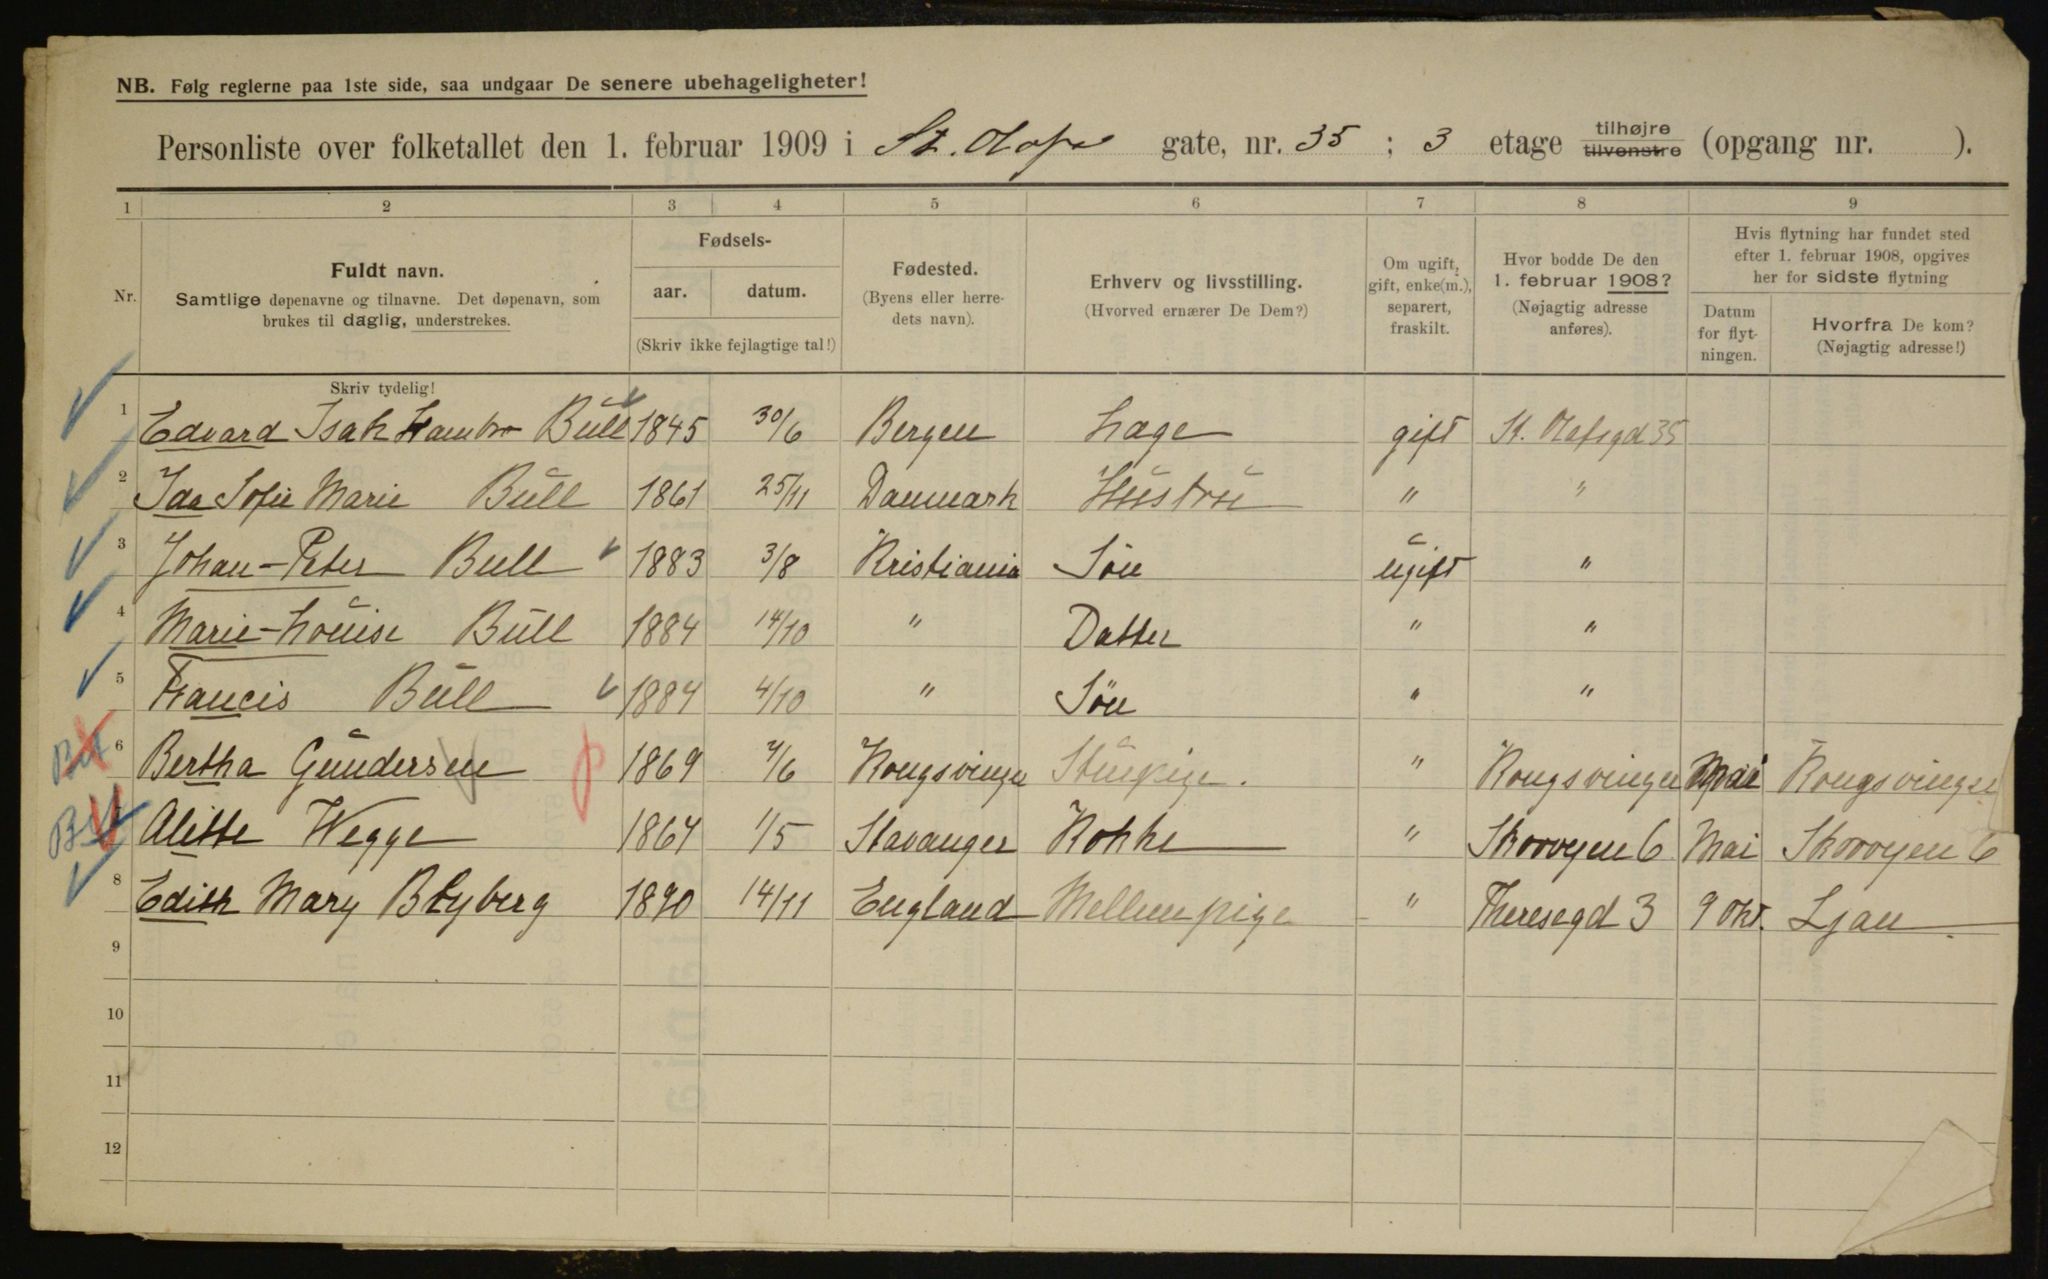 NB. Følg reglerne paa 1ste side, saa undgaar De senere ubehageligheter!
Personliste over folketallet den 1. februar 1909 i St. Olafs gate, nr. 35 ; 3 etage tilhøjre tilvenstre (opgang nr. ).
1 2 3 4 5 6 7 8 9
Nr.
Fuldt navn.
Samtlige døpenavne og tilnavne. Det døpenavn, som
brukes til daglig, understrekes.
Skriv tydelig!
Fødsels-
aar. datum.
(Skriv ikke fejlagtige tal!)
Fødested.
(Byens eller herre-
dets navn).
Erhverv og livsstilling.
(Hvorved ernærer De Dem?)
Om ugift,
gift, enke(m.),
separert,
fraskilt.
Hvor bodde De den
1. februar 1908?
(Nøjagtig adresse
anføres).
Hvis flytning har fundet sted
efter 1. februar 1908, opgives
her for sidste flytning
Datum
for flyt-
ningen.
Hvorfra De kom?
(Nøjagtig adresse!)
1 Edvard Isak Hambro Bull 1845 30/6 Bergen Læge gift St. Olafsgd 35
2 Ida Sofie Marie Bull 1861 25/11 Danmark Hustru " "
3 Johan-Peter Bull 1883 3/8 Kristiania Søn ugift "
4 Marie-Louise Bull 1884 14/10 " Datter " "
5 Francis Bull 1884 4/10 " Søn " "
6 Bertha Gundersen 1869 /6 Kongsvinger Stuepige. " Kongsvinger Mai Kongsvinger
7 Alette Wegge 1864 1/5 Stavanger Kokke " Skovvejen 6 Mai Skovvejen 6
8 Edith Mary Blyberg 1890 14/11 England Mellempige " Theresegd 3 9 Okt. Ljan
9
10
11
12